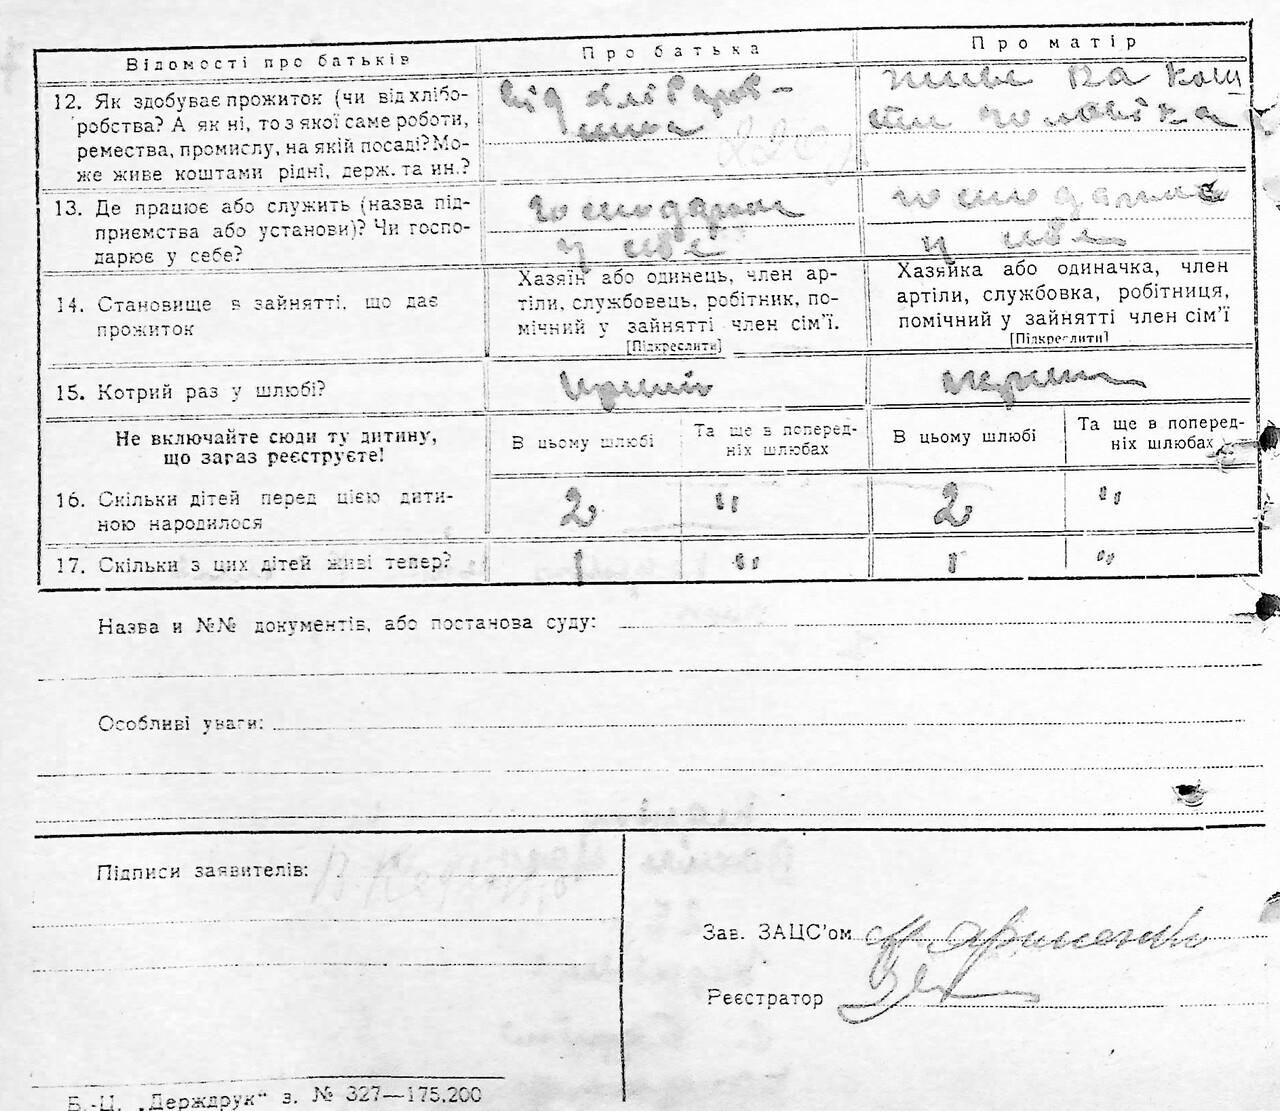 Відомості про батьків
Про батька
Про матір
12. Як здобуває прожиток (чи від хлібо-
робства? А як ні, то з якої саме роботи,
ремества, промислу, на якій посаді? Мо-
же живе коштами рідні, держ. та ин.?
від хлібороб-
ства
живе на кош
ти чоловіка
13. Де працює або служить (назва під-
приємства або установи)? Чи госпо-
дарює у себе?
господарює
у себе
господарює
у себе
14. Становище в зайнятті, що дає
прожиток
Хазяїн або одинець, член ар-
тіли, службовець, робітник, по-
мічний у зайнятті член сім'ї.
[Підкреслити]
Хазяйка або одиначка, член
артіли, службовка, робітниця,
помічний у зайнятті член сім'ї
[Підкреслити]
15. Котрий раз у шлюбі?
перший
перший
Не включайте сюди ту дитину,
що загаз реєструєте!
В цьому шлюбі
Та ще в поперед-
ніх шлюбах
В цьому шлюбі
Та ще в поперед-
ніх шлюбах
16. Скільки дітей перед цією дити-
ною народилося
2 " 2 "
17. Скільки з цих дітей живі тепер?
1 " 1 "
Назва и №№ документів, або постанова суду:
Особливі уваги:
Підписи заявителів:
Зав. ЗАЦС'ом
Реєстратор
Б.-Ц. „Держдрук" з. № 327—175.200